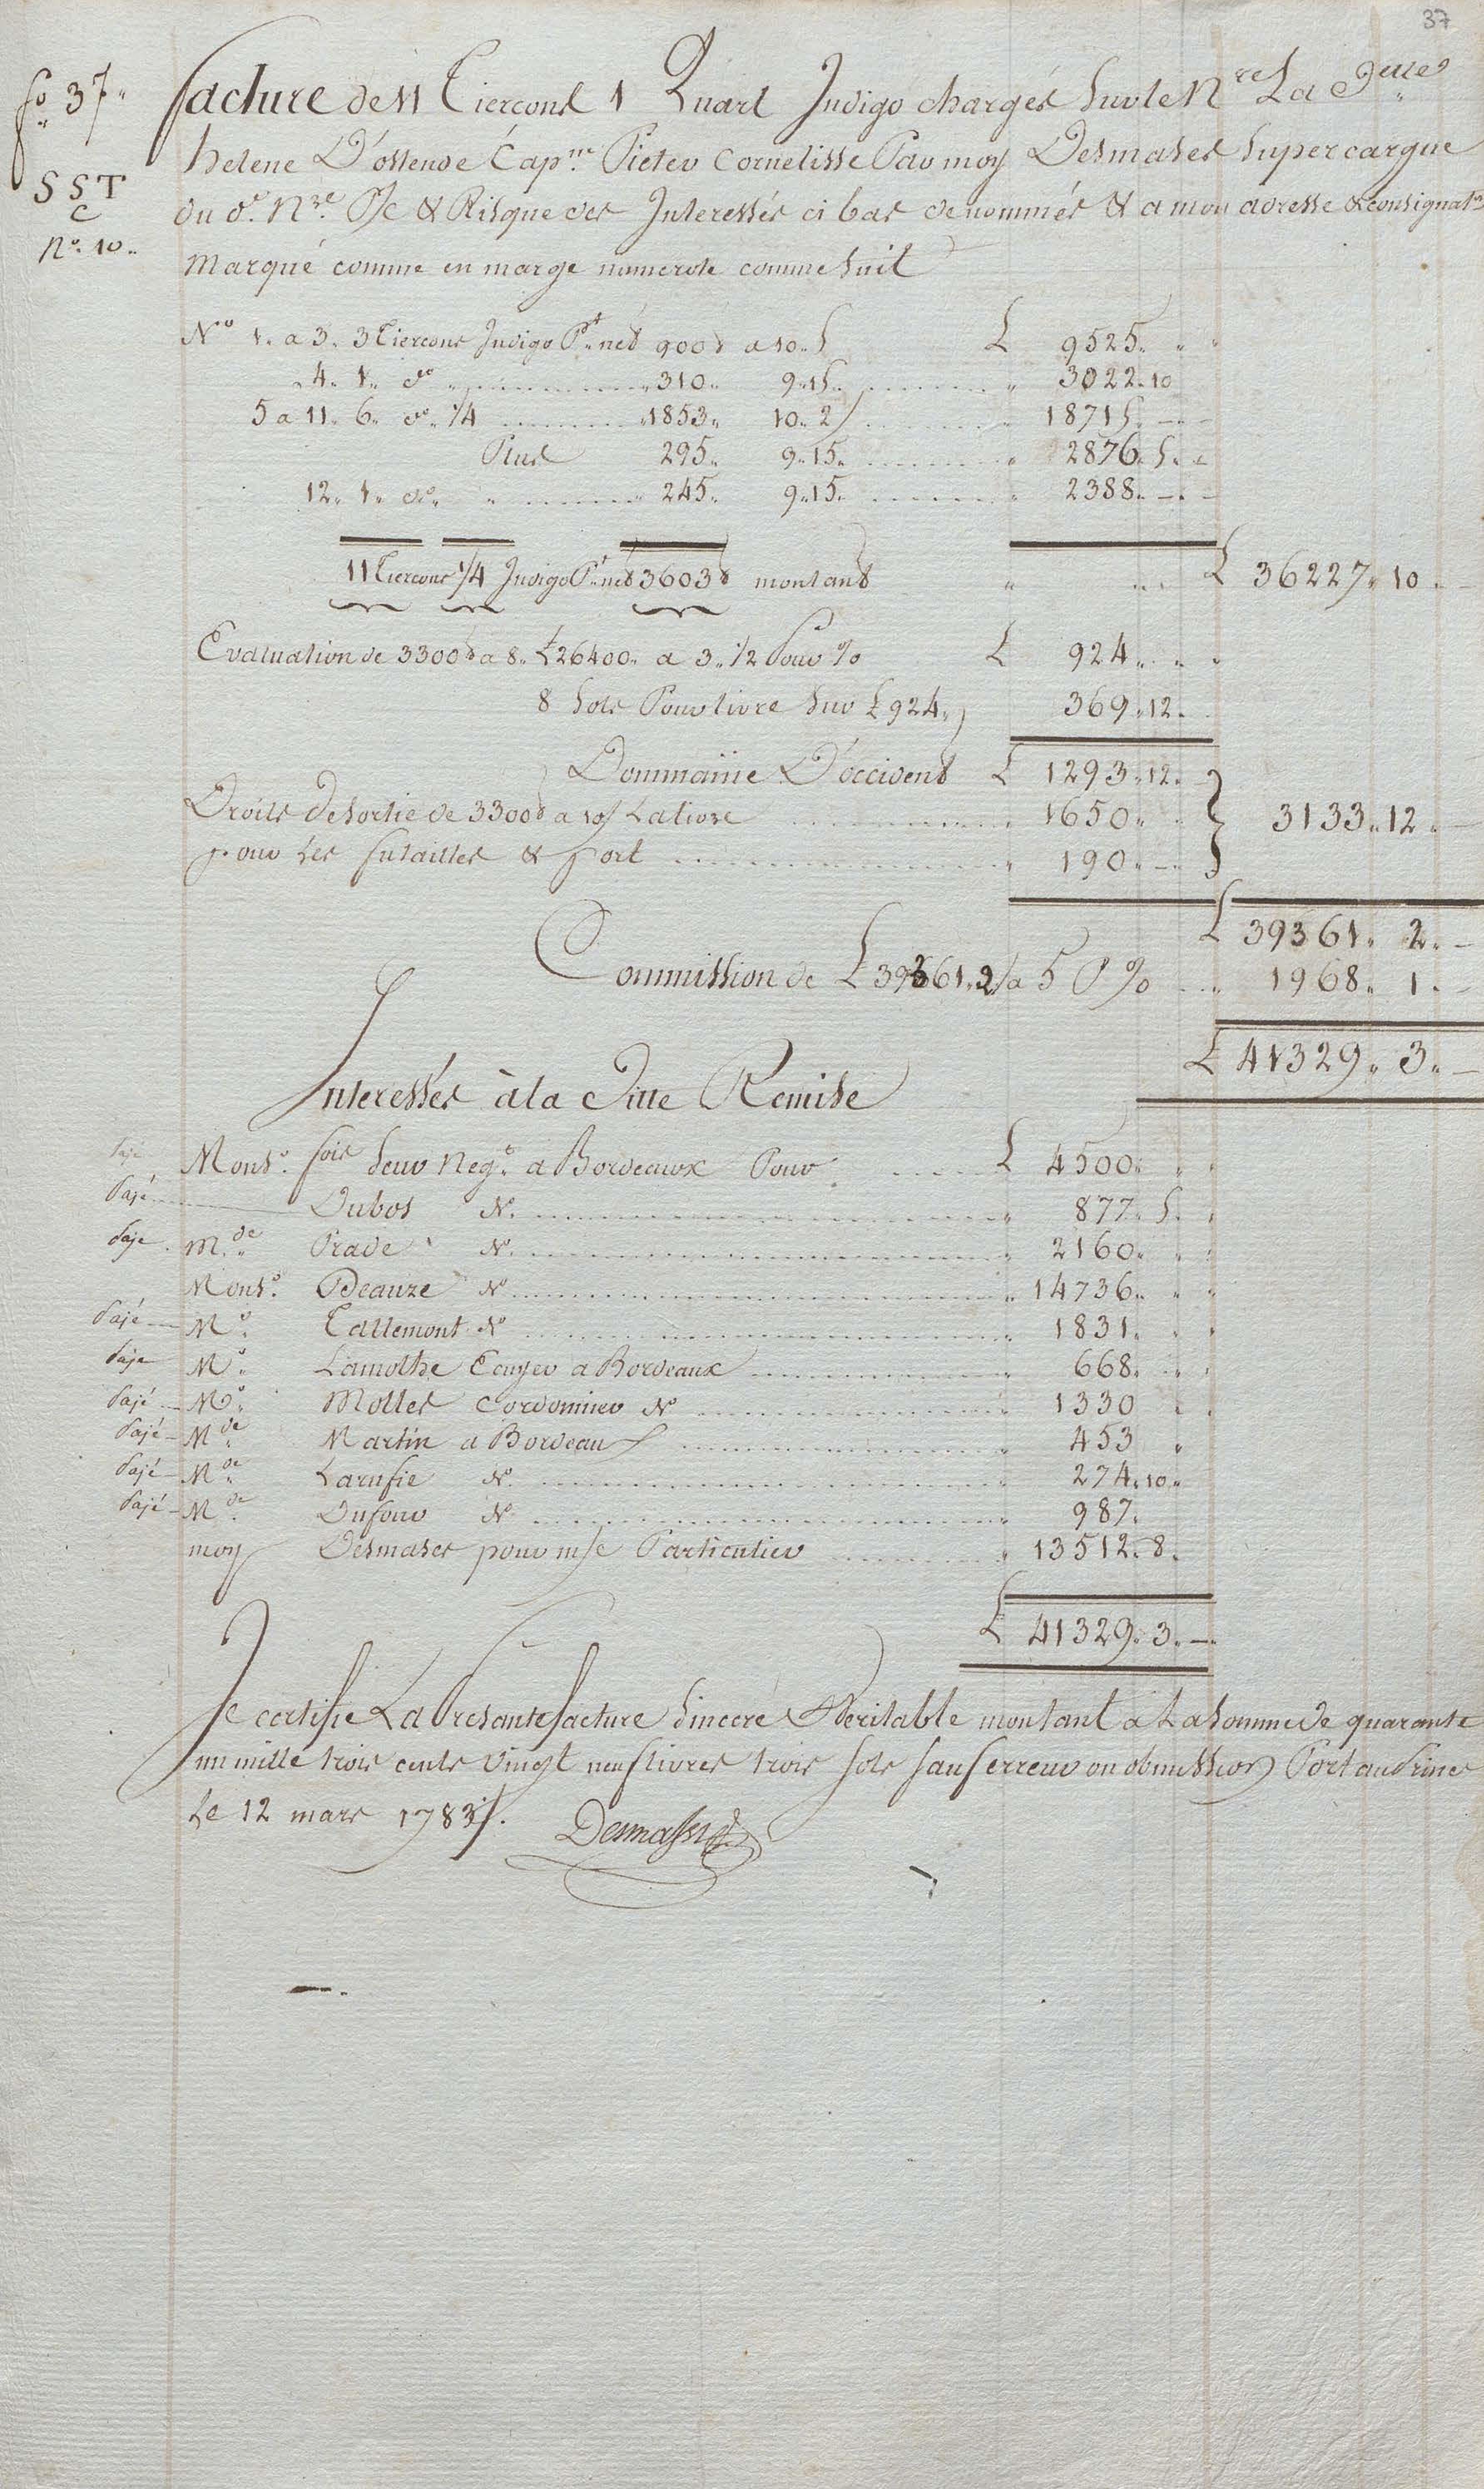 37
fo 37"
facture de 11 Tiercons 1 Quart Indigo chargés Sur le Nre La Jeune
helene D'ostende Capne Pieter Cornelisse Par moy Desmases Supercargue
du d. Nre P/c & Risque des Interessés ci bas denommés & a mon adresse & consignatn
Marqué comme en marge numerote comme Suit
S S T
C
No. 10..
No 1. a 3. 3 Tiercons Indigo Pt net 900 lb a 10. S £ 9525. " "
4. 1. do 310.. 9.15. " 3022.10
5 a 11. 6. do. 1/4 1853.. 10. 2/ " 18715. -. -
Plus 295.. 9.15. " 2876. 5. -
12. 1. do. 245.. 9.15. " 2388. -. -
11 Tiercons 1/4 Indigo Pt net 3603 lb montant " £ 36227. 10. -
Evaluation de 3300 lb a 8. £ 26400.. a 3. 1/2 Pour % £ 924. " "
8 Sols Pour livre Sur £ 924.. 369.12.
Dommaine D'occident £ 1293.12.
Droits de Sortie de 3300 lb a 10/ La livre " 1650. " 3133.12. -
pour Les futailles & port " 190. -
£ 39361. 2. -
Commission de £ 39361.2/ a 5 P % " 1968. 1. -
£ 41329. 3. -
Interessés à la Ditte Remise
Payé Monsr. fois Seur Nego. a Bordeaux Pour £ 4500. " "
Payé Dubos No. " 877. 5. "
Payé M.de Prade No. " 2160. " "
Monsr. Deauze No " 14736. " "
Payé M.r Tallemont No " 1831. " "
Payé M.r Lamothe Ecuyer a Bordeaux " 668. " "
Payé M.r Molles Cordonnier No " 1330 " "
Payé M.de Martin a Bordeaux " 453 "
Payé M.de Larufie No. " 274.10.
Payé M.de Dufour No " 987.
moy Desmases pour m/c Particulier " 13512. 8.
£ 41329. 3. -
Je certifie La Presante facture Sincere & Veritable montant a La Somme de quarante
un mille trois cents vingt neuf livres trois Sols Sauf erreur ou obmission Port au Prince
Le 12 mars 1783/.
Desmases